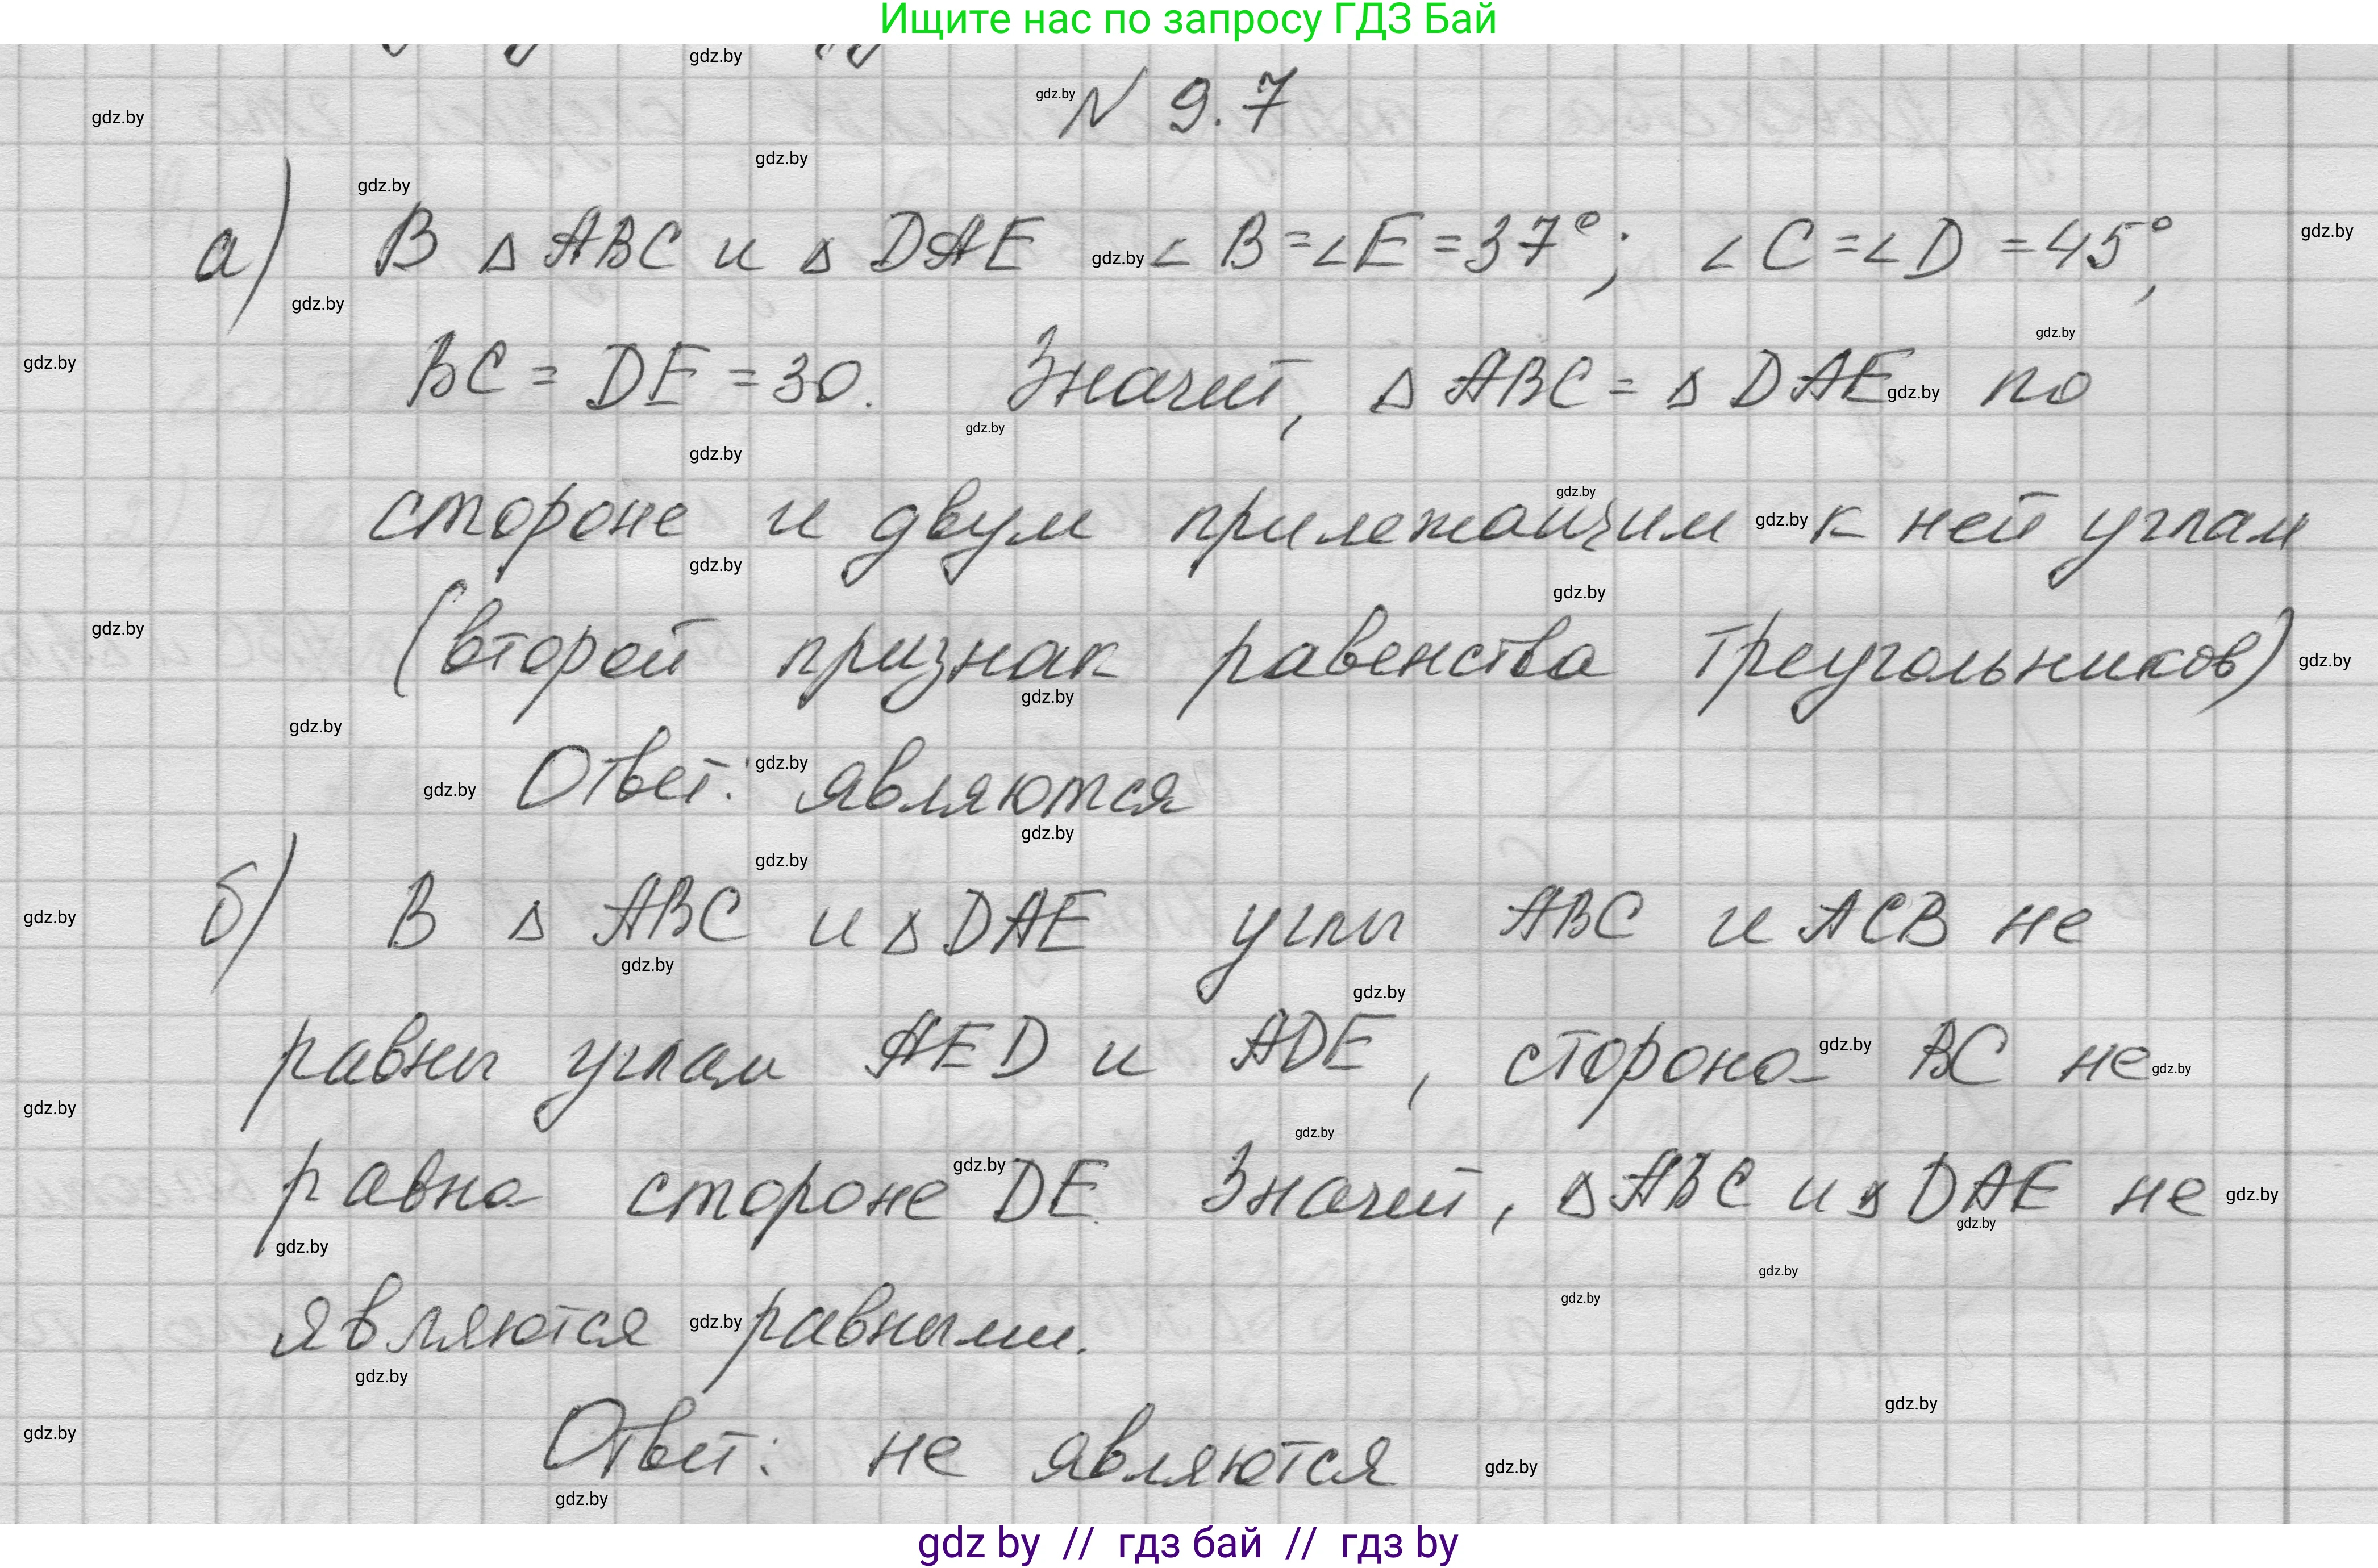 Ищите нас по запросу ГДЗ Бай
N 9.7
а) В ΔABC и ΔDAE ∠B=∠E=37°; ∠C=∠D=45°,
BC = DE = 30. Значит, ΔABC = ΔDAE по
стороне и двум прилежащим к ней углам
(второй признак равенства треугольников)
Ответ: являются
б) В ΔABC и ΔDAE углы ABC и ACB не
равны углам AED и ADE, сторона BC не
равна стороне DE. Значит, ΔABC и ΔDAE не
являются равными.
Ответ: не являются
gdz by // гдз бай // гдз by